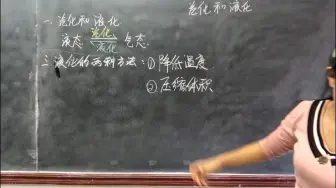 汽化和液化
一、汽化和液化
汽化
液态 气态
液化
二、液化的两种方法：①降低温度
②压缩体积